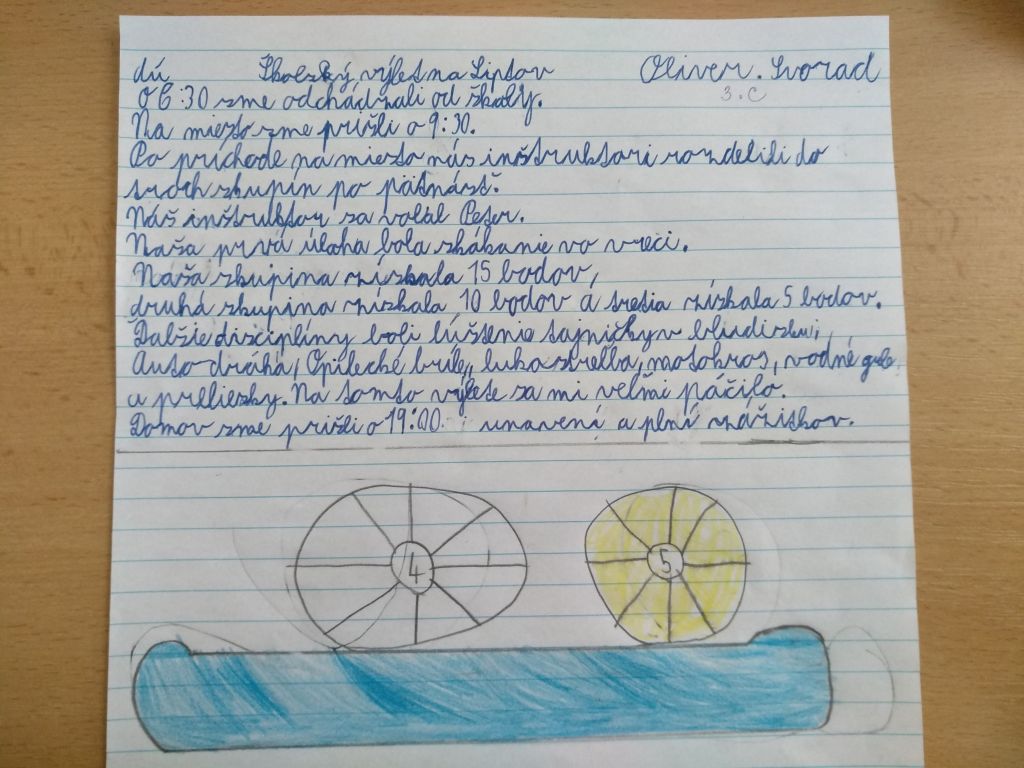 dú Školský výlet na Liptov Oliver. Svorad
3. C
O 6:30 sme odchádzali od školy.
Na miesto sme prišli o 9:30.
Po príchode na miesto nás inštruktori rozdelili do
troch skupín po pätnásť.
Náš inštruktor sa volal Peter.
Naša prvá úloha bola skákanie vo vreci.
Naša skupina získala 15 bodov,
druhá skupina získala 10 bodov a tretia získala 5 bodov.
Ďalšie disciplíny boli lúštenie tajničky v bludisku,
Auto dráha, Opilecké brúle, luko streľba, motokros, vodné gule
a preliezky. Na tomto výlete sa mi veľmi páčilo.
Domov sme prišli o 19:00 unavení a plní zážitkov.
4
5